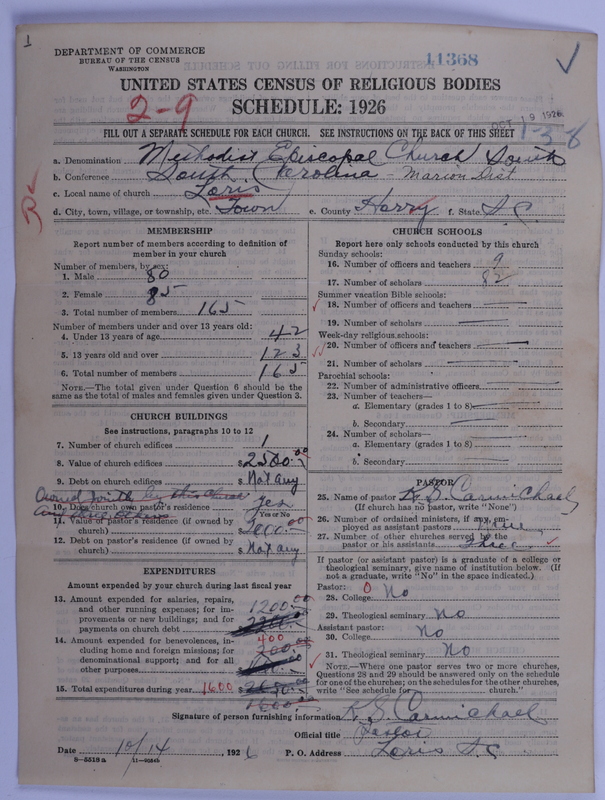 1
DEPARTMENT OF COMMERCE
BUREAU OF THE CENSUS
WASHINGTON
11368
UNITED STATES CENSUS OF RELIGIOUS BODIES
2-9
SCHEDULE: 1926
OCT 19 1926
FILL OUT A SEPARATE SCHEDULE FOR EACH CHURCH. SEE INSTRUCTIONS ON THE BACK OF THIS SHEET
1-3-8
a. Denomination Methodist Episcopal Church South
b. Conference South Carolina - Marion Dist
c. Local name of church Loris
d. City, town, village, or township, etc. Town e. County Horry f. State S C
MEMBERSHIP
Report number of members according to definition of
member in your church
Number of members, by sex:
1. Male 80
2. Female 85
3. Total number of members 165
Number of members under and over 13 years old:
4. Under 13 years of age 42
5. 13 years old and over 123
6. Total number of members 165
NOTE.—The total given under Question 6 should be
same as the total of males and females given under Question 3.
CHURCH BUILDINGS
See instructions, paragraphs 10 to 12
7. Number of church edifices 1
8. Value of church edifices $2500.00
9. Debt on church edifices $ Not any
Owned jointly
10. Does church own pastor's residence yes
Yes or No
11. Value of pastor's residence (if owned by
church) $2000.00
12. Debt on pastor's residence (if owned by
church) $ Not any
EXPENDITURES
Amount expended by your church during last fiscal year
13. Amount expended for salaries, repairs,
and other running expenses; for im-
provements or new buildings; and for
payments on church debt 1200.00
14. Amount expended for benevolences, in-
cluding home and foreign missions; for
denominational support; and for all
other purposes 400
15. Total expenditures during year 1600
CHURCH SCHOOLS
Report here only schools conducted by this church
Sunday schools:
16. Number of officers and teachers 9
17. Number of scholars 82
Summer vacation Bible schools:
18. Number of officers and teachers
19. Number of scholars
Week-day religious schools:
20. Number of officers and teachers
21. Number of scholars
Parochial schools:
22. Number of administrative officers
23. Number of teachers—
a. Elementary (grades 1 to 8)
b. Secondary
24. Number of scholars—
a. Elementary (grades 1 to 8)
b. Secondary
PASTOR
25. Name of pastor K. S. Carmichael
(If church has no pastor, write "None")
26. Number of ordained ministers, if any, em-
ployed as assistant pastors None
27. Number of other churches served by the
pastor or his assistants three
If pastor (or assistant pastor) is a graduate of a college or
theological seminary, give name of institution below. (If
not a graduate, write "No" in the space indicated.)
Pastor: 0
28. College No
29. Theological seminary No
Assistant pastor:
30. College No
31. Theological seminary No
NOTE.—Where one pastor serves two or more churches,
Questions 28 and 29 should be answered only on the schedule
for one of the churches; on the schedules for the other churches,
write "See schedule for church."
Signature of person furnishing information K. S. Carmichael
Official title Pastor
Date 10/14 1926 P. O. Address Loris S. C
8-5518 a